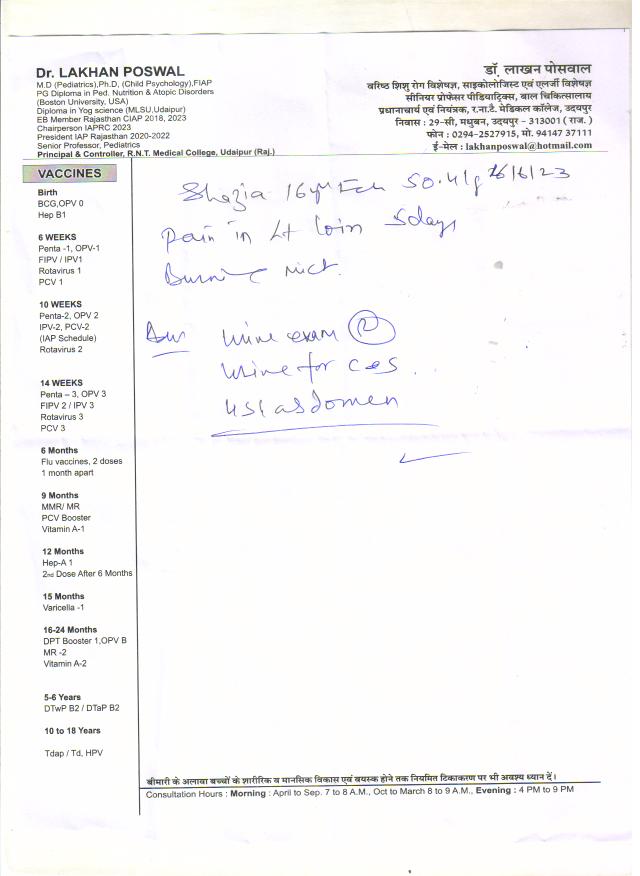 Dr. LAKHAN POSWAL
M.D (Pediatrics),Ph.D, (Child Psychology),FIAP
PG Diploma in Ped. Nutrition & Atopic Disorders
(Boston University, USA)
Diploma in Yog science (MLSU,Udaipur)
EB Member Rajasthan CIAP 2018, 2023
Chairperson IAPRC 2023
President IAP Rajasthan 2020-2022
Senior Professor, Pediatrics
Principal & Controller, R.N.T. Medical College, Udaipur (Raj.)
डॉ. लाखन पोसवाल
वरिष्ठ शिशु रोग विशेषज्ञ, साइकोलोजिस्ट एवं एलर्जी विशेषज्ञ
सीनियर प्रोफेसर पीडियाट्रिक्स, बाल चिकित्सालाय
प्रधानाचार्य एवं नियंत्रक, र.ना.टै. मेडिकल कॉलेज, उदयपुर
निवास : 29-सी, मधुबन, उदयपुर - 313001 ( राज. )
फोन : 0294-2527915, मो. 94147 37111
ई-मेल : lakhanposwal@hotmail.com
VACCINES
Birth
BCG,OPV 0
Hep B1
6 WEEKS
Penta -1, OPV-1
FIPV / IPV1
Rotavirus 1
PCV 1
10 WEEKS
Penta-2, OPV 2
IPV-2, PCV-2
(IAP Schedule)
Rotavirus 2
14 WEEKS
Penta – 3, OPV 3
FIPV 2 / IPV 3
Rotavirus 3
PCV 3
6 Months
Flu vaccines, 2 doses
1 month apart
9 Months
MMR/ MR
PCV Booster
Vitamin A-1
12 Months
Hep-A 1
2nd Dose After 6 Months
15 Months
Varicella -1
16-24 Months
DPT Booster 1,OPV B
MR -2
Vitamin A-2
5-6 Years
DTwP B2 / DTaP B2
10 to 18 Years
Tdap / Td, HPV
Shazia 16yr 50.4kg 16/6/23
Pain in Lt loin 5days
Burning mict.
Adv Urine exam (R)
Urine for C&S
USG abdomen
बीमारी के अलावा बच्चों के शारीरिक व मानसिक विकास एवं वयस्क होने तक नियमित टिकाकरण पर भी अवश्य ध्यान दें।
Consultation Hours : Morning : April to Sep. 7 to 8 A.M., Oct to March 8 to 9 A.M., Evening : 4 PM to 9 PM